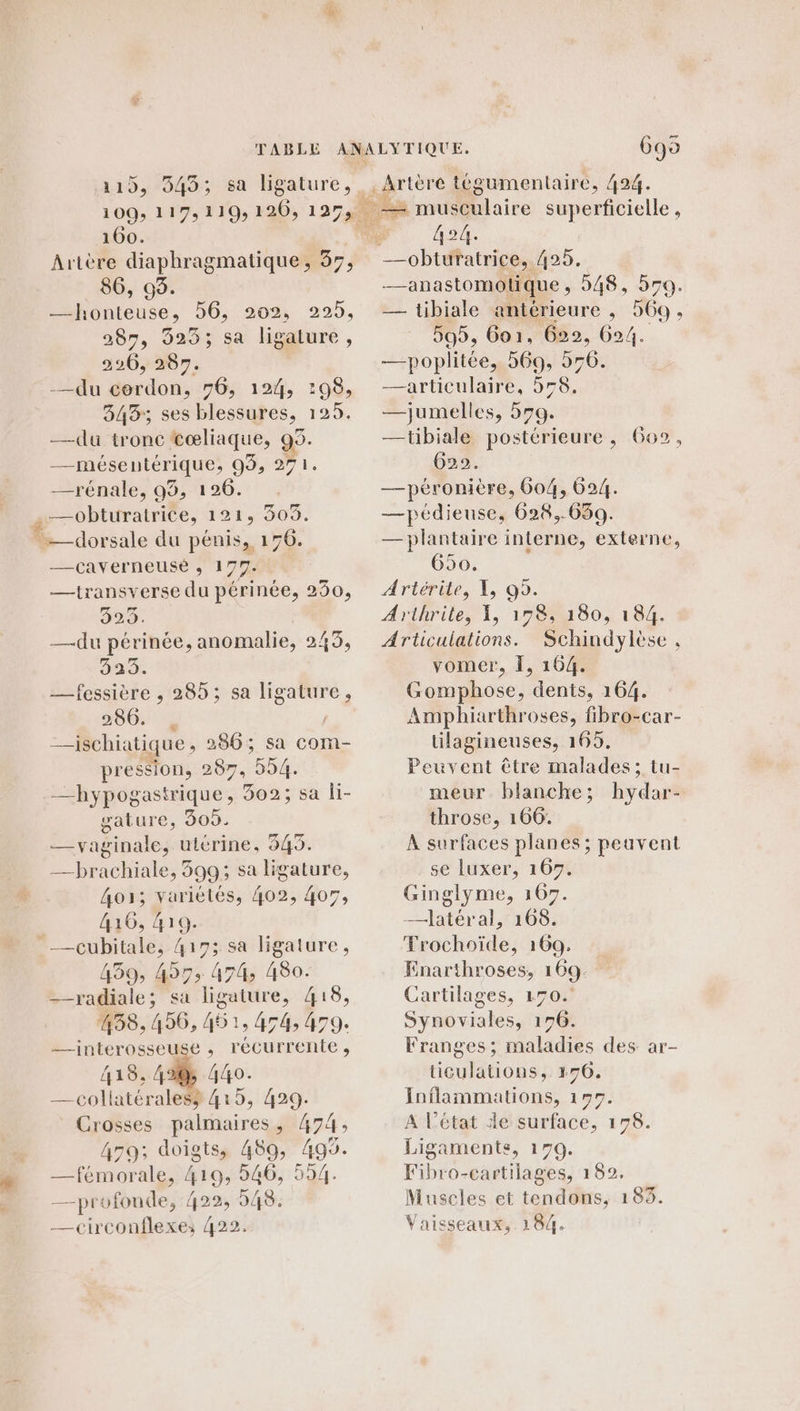 TABLE ANALYTIQUE. 695
115, 343; sa ligature,
109, 117, 119, 126, 127,
160.
Artère diaphragmatique, 37,
86, 93.
—honteuse, 56, 202, 225,
287, 323; sa ligature,
226, 287.
—du cordon, 76, 124, 198,
343; ses blessures, 125.
—du tronc cœliaque, 93.
—mésentérique, 93, 271.
—rénale, 93, 126.
—obturatrice, 121, 303.
—dorsale du pénis, 176.
—caverneuse, 177.
—transverse du périnée, 230,
323.
—du périnée, anomalie, 243,
323.
—fessière, 285; sa ligature,
286.
—ischiatique, 286; sa com-
pression, 287, 554.
—hypogastrique, 302; sa li-
gature, 305.
—vaginale, utérine, 343.
—brachiale, 399; sa ligature,
401; variétés, 402, 407,
416, 419.
—cubitale, 417; sa ligature,
439, 457, 474, 480.
—radiale; sa ligature, 418,
438, 456, 461, 474, 479.
—interosseuse, récurrente,
418, 440.
—collatérales, 415, 429.
Crosses palmaires, 474,
479; doigts, 489, 493.
—fémorale, 419, 546, 554.
—profonde, 422, 548.
—circonflexe, 422.
Artère tégumentaire, 424.
— musculaire superficielle,
424.
—obturatrice, 425.
—anastomotique, 548, 579.
— tibiale antérieure, 569,
595, 601, 622, 624.
—poplitée, 569, 576.
—articulaire, 578.
—jumelles, 579.
—tibiale postérieure, 602,
622.
—péronière, 604, 624.
—pédieuse, 628, 639.
—plantaire interne, externe,
650.
Artérite, I, 95.
Arthrite, I, 178, 180, 184.
Articulations. Schindylèse,
vomer, I, 164.
Gomphose, dents, 164.
Amphiarthroses, fibro-car-
tilagineuses, 165.
Peuvent être malades; tu-
meur blanche; hydar-
throse, 166.
A surfaces planes; peuvent
se luxer, 167.
Ginglyme, 167.
—latéral, 168.
Trochoïde, 169.
Enarthroses, 169.
Cartilages, 170.
Synoviales, 176.
Franges; maladies des ar-
ticulations, 176.
Inflammations, 177.
A l'état de surface, 178.
Ligaments, 179.
Fibro-cartilages, 182.
Muscles et tendons, 183.
Vaisseaux, 184.